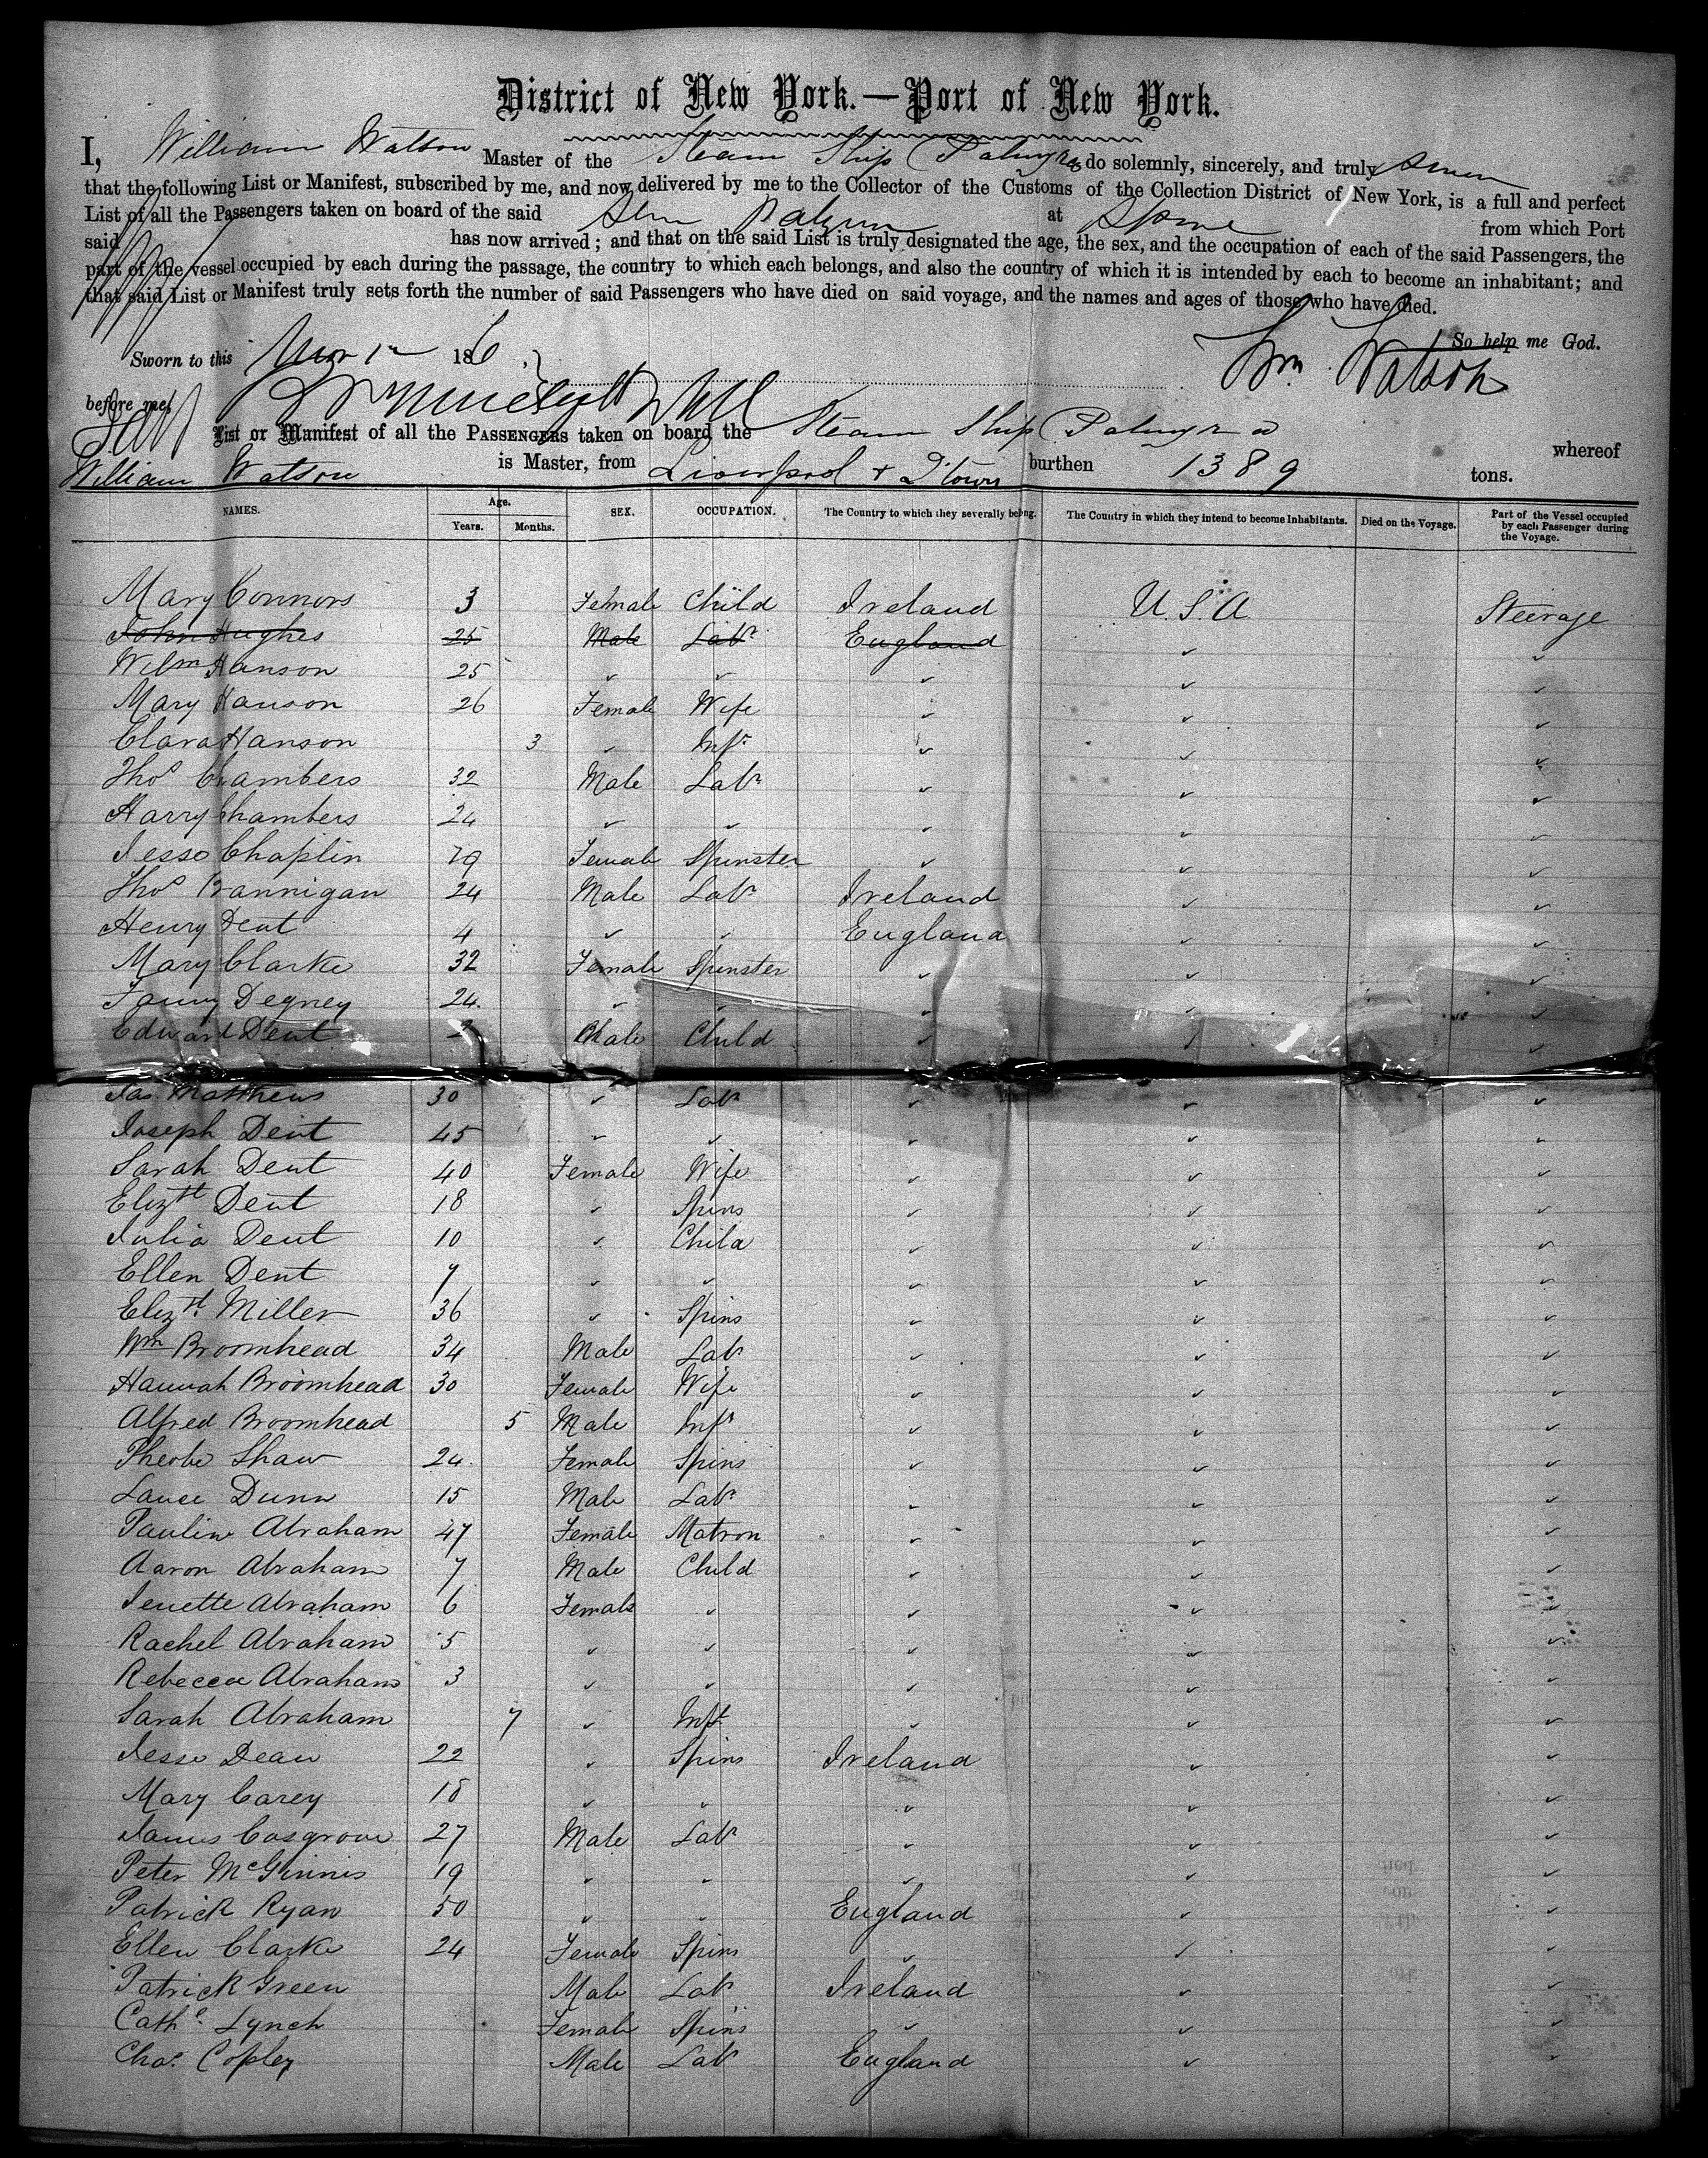 District of New York.—Port of New York.
I, William Watson Master of the Steam Ship Palmyra do solemnly, sincerely, and truly
that the following List or Manifest, subscribed by me, and now delivered by me to the Collector of the Customs of the Collection District of New York, is a full and perfect
List of all the Passengers taken on board of the said at from which Port
said has now arrived; and that on the said List is truly designated the age, the sex, and the occupation of each of the said Passengers, the
part of the vessel occupied by each during the passage, the country to which each belongs, and also the country of which it is intended by each to become an inhabitant; and
that said List or Manifest truly sets forth the number of said Passengers who have died on said voyage, and the names and ages of those who have died.
So help me God.
Sworn to this 186
Wm Watson
before me,
List or Manifest of all the PASSENGERS taken on board the Steam Ship Palmyra whereof
William Watson is Master, from Liverpool + Q'town burthen 1389 tons.
NAMES. Age. Years. Months. SEX. OCCUPATION. The Country to which they severally belong. The Country in which they intend to become Inhabitants. Died on the Voyage. Part of the Vessel occupied by each Passenger during the Voyage.
Mary Connors 3 Female Child Ireland U.S.A Steerage
John Hughes 25 Male Labr England
Wilm Hanson 25
Mary Hanson 26 Female Wife
Clara Hanson 3 Inft
Thos Chambers 32 Male Labr
Harry Chambers 24
Jesse Chaplin 19 Female Spinster
Thos Brannigan 24 Male Labr Ireland
Henry Dent 4 England
Mary Clarke 32 Female Spinster
Fanny Degney 24
Edward Dent Male Child
Jas Matthews 30 Labr
Joseph Dent 45
Sarah Dent 40 Female Wife
Elizth Dent 18 Spins
Julia Dent 10 Child
Ellen Dent 7
Elizth Miller 36 Spins
Wm Broomhead 34 Male Labr
Hannah Broomhead 30 Female Wife
Alfred Broomhead 5 Male Inft
Pheobe Shaw 24 Female Spins
Lance Dunn 15 Male Labr
Pauline Abraham 47 Female Matron
Aaron Abraham 7 Male Child
Jenette Abraham 6 Female
Rachel Abraham 5
Rebecca Abraham 3
Sarah Abraham 7 Inft
Jesse Dean 22 Spins Ireland
Mary Carey 18
James Cosgrove 27 Male Labr
Peter McGinnis 19
Patrick Ryan 50 England
Ellen Clarke 24 Female Spins
Patrick Green Male Labr Ireland
Cathe Lynch Female Spins
Chas. Copley Male Labr England